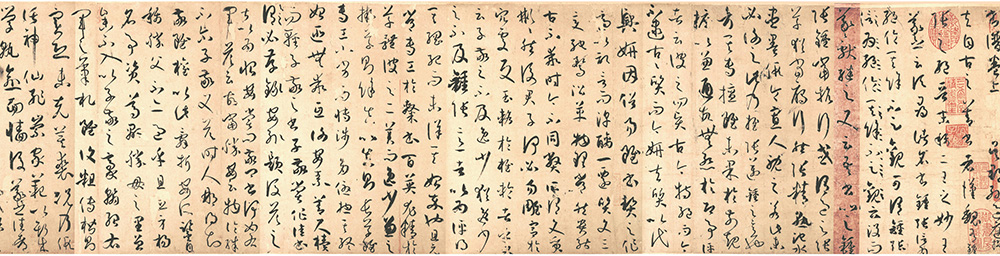 書譜卷上
夫自古之善書者漢魏有鍾
張之絕晉末稱二王之妙王
羲之云頃尋諸名書鍾張
信為絕倫其餘不足觀可謂鍾張云沒而
羲獻繼之又云吾書比之鍾
張鍾當抗行或謂過之張
草猶當雁行然張精熟池水
盡墨假令寡人耽之若此未
必謝之此乃推張邁鍾之意
也考其專擅雖未果於前規
摭以兼通故無慚於即事評
者云彼之四賢古今特絕而今
不逮古古質而今妍夫質以代
興妍因俗易雖書契之作
適以記言而淳醨一遷質文三
變馳騖沿革物理常然貴能
古不乖時今不同弊所謂文質彬
彬然後君子何必易雕宮於
穴處反玉輅於椎輪者乎又
云子敬之不及逸少猶逸少
之不及鍾張意者以為評得其綱紀
而未詳其始卒也且元
常專工於隸書伯英尤精於
草體彼之二美而逸少兼之
擬草則餘真比真則長草雖
專工小劣而博涉多優總其終
始匪無乖互謝安素善尺牘
而輕子敬之書子敬嘗作佳書
與之謂必存錄安輒題後答之
甚以為恨安嘗問敬卿書何如
右軍答云故當勝安云物論殊
不爾子敬又答時人那得知
敬雖權以此辭折安所鑒自
稱勝父不亦過乎且立身揚
名事資尊顯勝母之里
曾參不入以子敬之豪翰紹右
軍之筆札雖復粗傳楷則
實恐未克箕裘況乃假
託神仙恥崇家範以斯成
學孰愈面牆後羲之往都